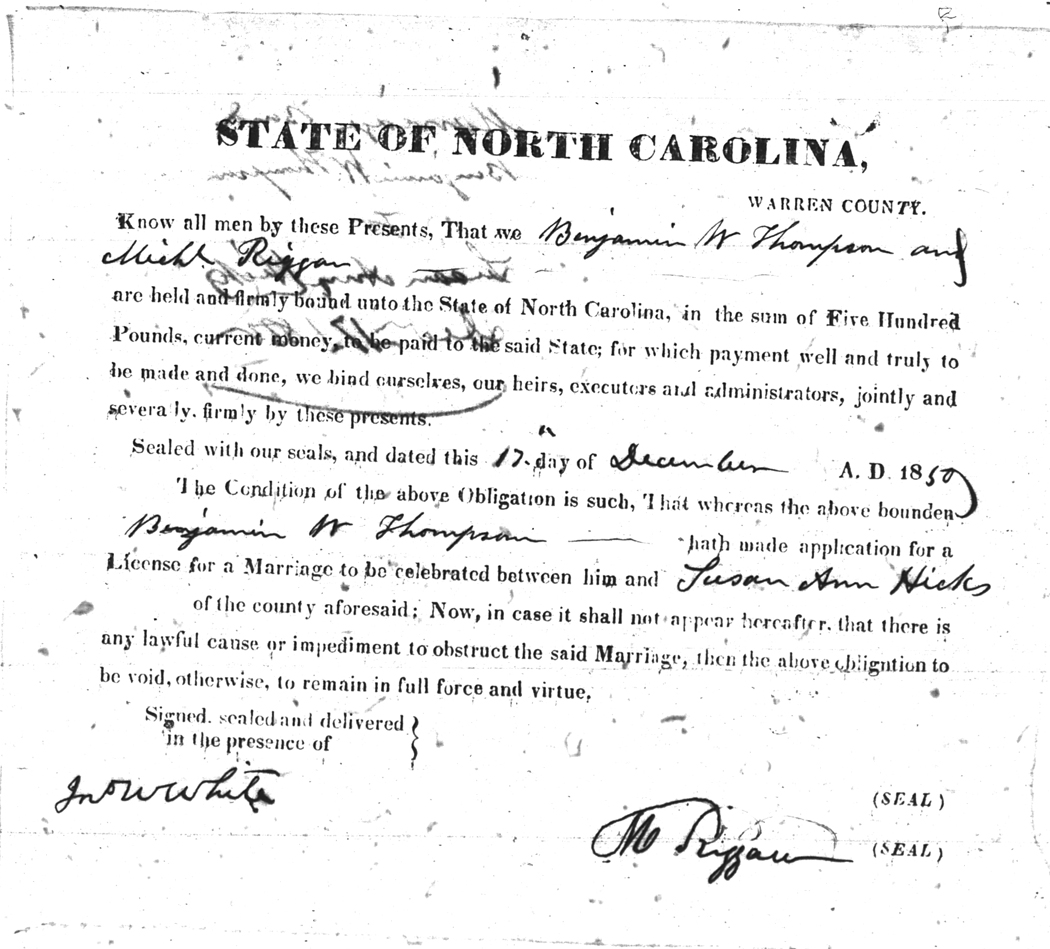 STATE OF NORTH CAROLINA,
WARREN COUNTY.
Know all men by these Presents, That we Benjamin W Thompson and
Michl. Riggan
are held and firmly bound unto the State of North Carolina, in the sum of Five Hundred
Pounds, current money, to be paid to the said State; for which payment well and truly to
be made and done, we bind ourselves, our heirs, executors and administrators, jointly and
severally, firmly by these presents.
Sealed with our seals, and dated this 17 day of December A. D. 1850
The Condition of the above Obligation is such, That whereas the above bounden
Benjamin W Thompson hath made application for a
License for a Marriage to be celebrated between him and Susan Ann Hicks
of the county aforesaid; Now, in case it shall not appear hereafter, that there is
any lawful cause or impediment to obstruct the said Marriage, then the above obligation to
be void, otherwise, to remain in full force and virtue.
Signed, sealed and delivered
in the presence of
Jno W White
(SEAL)
M Riggan (SEAL)